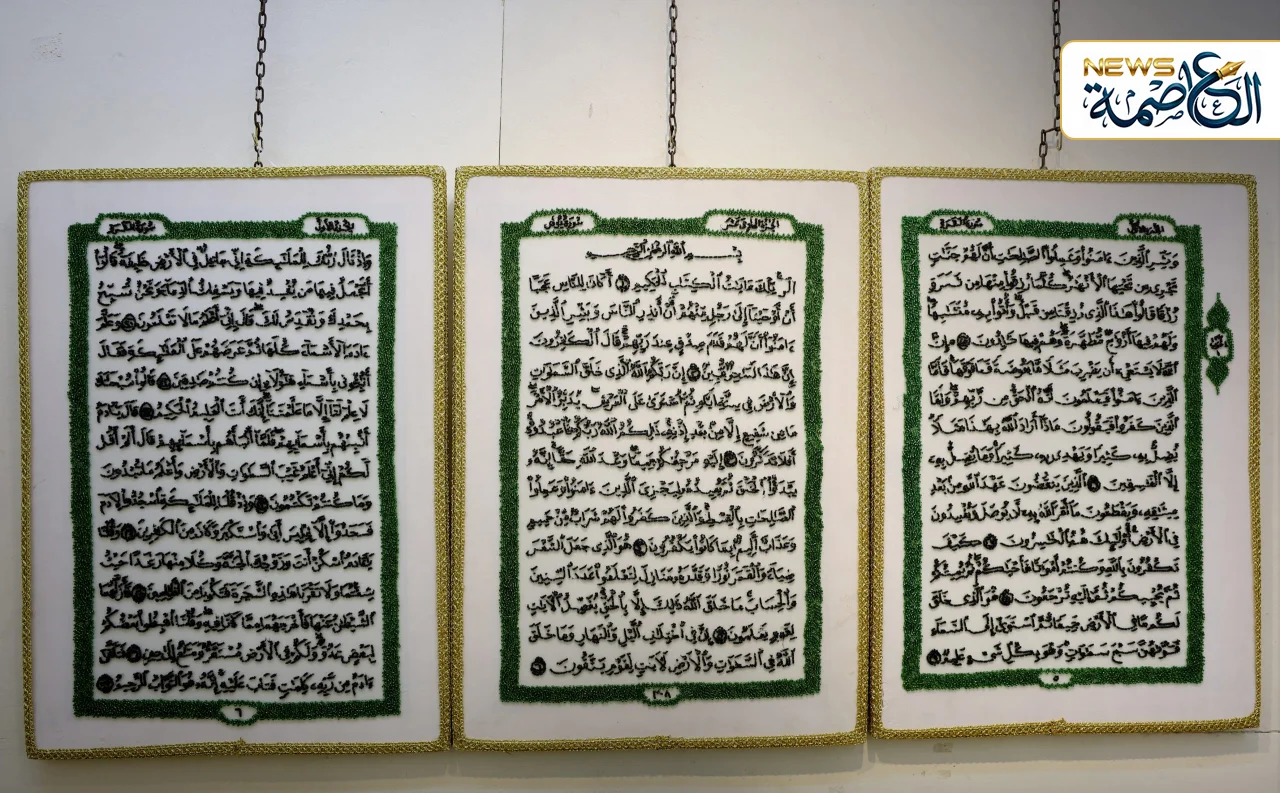 NEWS
العاصمة
الجزء الأول
سورة البقرة
وَبَشِّرِ الَّذِينَ ءَامَنُوا وَعَمِلُوا الصَّالِحَاتِ أَنَّ لَهُمْ جَنَّاتٍ
تَجْرِي مِن تَحْتِهَا الْأَنْهَارُ كُلَّمَا رُزِقُوا مِنْهَا مِن ثَمَرَةٍ
رِّزْقًا قَالُوا هَذَا الَّذِي رُزِقْنَا مِن قَبْلُ وَأُتُوا بِهِ مُتَشَابِهًا
وَلَهُمْ فِيهَا أَزْوَاجٌ مُّطَهَّرَةٌ وَهُمْ فِيهَا خَالِدُونَ ٢٥ إِنَّ
اللَّهَ لَا يَسْتَحْيِي أَن يَضْرِبَ مَثَلًا مَّا بَعُوضَةً فَمَا فَوْقَهَا فَأَمَّا
الَّذِينَ ءَامَنُوا فَيَعْلَمُونَ أَنَّهُ الْحَقُّ مِن رَّبِّهِمْ وَأَمَّا
الَّذِينَ كَفَرُوا فَيَقُولُونَ مَاذَا أَرَادَ اللَّهُ بِهَذَا مَثَلًا
يُضِلُّ بِهِ كَثِيرًا وَيَهْدِي بِهِ كَثِيرًا وَمَا يُضِلُّ بِهِ
إِلَّا الْفَاسِقِينَ ٢٦ الَّذِينَ يَنقُضُونَ عَهْدَ اللَّهِ مِن بَعْدِ
مِيثَاقِهِ وَيَقْطَعُونَ مَا أَمَرَ اللَّهُ بِهِ أَن يُوصَلَ وَيُفْسِدُونَ
فِي الْأَرْضِ أُولَئِكَ هُمُ الْخَاسِرُونَ ٢٧ كَيْفَ
تَكْفُرُونَ بِاللَّهِ وَكُنتُمْ أَمْوَاتًا فَأَحْيَاكُمْ ثُمَّ يُمِيتُكُمْ
ثُمَّ يُحْيِيكُمْ ثُمَّ إِلَيْهِ تُرْجَعُونَ ٢٨ هُوَ الَّذِي خَلَقَ
لَكُم مَّا فِي الْأَرْضِ جَمِيعًا ثُمَّ اسْتَوَى إِلَى السَّمَاءِ
فَسَوَّاهُنَّ سَبْعَ سَمَاوَاتٍ وَهُوَ بِكُلِّ شَيْءٍ عَلِيمٌ ٢٩
٥
الجزء الحادي عشر
سورة يونس
بِسْمِ اللَّهِ الرَّحْمَنِ الرَّحِيمِ
الر تِلْكَ ءَايَاتُ الْكِتَابِ الْحَكِيمِ ١ أَكَانَ لِلنَّاسِ عَجَبًا
أَنْ أَوْحَيْنَا إِلَى رَجُلٍ مِّنْهُمْ أَنْ أَنذِرِ النَّاسَ وَبَشِّرِ الَّذِينَ
ءَامَنُوا أَنَّ لَهُمْ قَدَمَ صِدْقٍ عِندَ رَبِّهِمْ قَالَ الْكَافِرُونَ
إِنَّ هَذَا لَسَاحِرٌ مُّبِينٌ ٢ إِنَّ رَبَّكُمُ اللَّهُ الَّذِي خَلَقَ السَّمَاوَاتِ
وَالْأَرْضَ فِي سِتَّةِ أَيَّامٍ ثُمَّ اسْتَوَى عَلَى الْعَرْشِ يُدَبِّرُ الْأَمْرَ
مَا مِن شَفِيعٍ إِلَّا مِن بَعْدِ إِذْنِهِ ذَلِكُمُ اللَّهُ رَبُّكُمْ فَاعْبُدُوهُ
أَفَلَا تَذَكَّرُونَ ٣ إِلَيْهِ مَرْجِعُكُمْ جَمِيعًا وَعْدَ اللَّهِ حَقًّا إِنَّهُ
يَبْدَؤُا الْخَلْقَ ثُمَّ يُعِيدُهُ لِيَجْزِيَ الَّذِينَ ءَامَنُوا وَعَمِلُوا
الصَّالِحَاتِ بِالْقِسْطِ وَالَّذِينَ كَفَرُوا لَهُمْ شَرَابٌ مِّنْ حَمِيمٍ
وَعَذَابٌ أَلِيمٌ بِمَا كَانُوا يَكْفُرُونَ ٤ هُوَ الَّذِي جَعَلَ الشَّمْسَ
ضِيَاءً وَالْقَمَرَ نُورًا وَقَدَّرَهُ مَنَازِلَ لِتَعْلَمُوا عَدَدَ السِّنِينَ
وَالْحِسَابَ مَا خَلَقَ اللَّهُ ذَلِكَ إِلَّا بِالْحَقِّ يُفَصِّلُ الْآيَاتِ
لِقَوْمٍ يَعْلَمُونَ ٥ إِنَّ فِي اخْتِلَافِ اللَّيْلِ وَالنَّهَارِ وَمَا خَلَقَ
اللَّهُ فِي السَّمَاوَاتِ وَالْأَرْضِ لَآيَاتٍ لِّقَوْمٍ يَتَّقُونَ ٦
٢٠٨
الجزء الأول
سورة البقرة
وَإِذْ قَالَ رَبُّكَ لِلْمَلَائِكَةِ إِنِّي جَاعِلٌ فِي الْأَرْضِ خَلِيفَةً قَالُوا
أَتَجْعَلُ فِيهَا مَن يُفْسِدُ فِيهَا وَيَسْفِكُ الدِّمَاءَ وَنَحْنُ نُسَبِّحُ
بِحَمْدِكَ وَنُقَدِّسُ لَكَ قَالَ إِنِّي أَعْلَمُ مَا لَا تَعْلَمُونَ ٣٠ وَعَلَّمَ
ءَادَمَ الْأَسْمَاءَ كُلَّهَا ثُمَّ عَرَضَهُمْ عَلَى الْمَلَائِكَةِ فَقَالَ
أَنبِئُونِي بِأَسْمَاءِ هَؤُلَاءِ إِن كُنتُمْ صَادِقِينَ ٣١ قَالُوا سُبْحَانَكَ
لَا عِلْمَ لَنَا إِلَّا مَا عَلَّمْتَنَا إِنَّكَ أَنتَ الْعَلِيمُ الْحَكِيمُ ٣٢ قَالَ يَاآدَمُ
أَنبِئْهُم بِأَسْمَائِهِمْ فَلَمَّا أَنبَأَهُم بِأَسْمَائِهِمْ قَالَ أَلَمْ أَقُل
لَّكُمْ إِنِّي أَعْلَمُ غَيْبَ السَّمَاوَاتِ وَالْأَرْضِ وَأَعْلَمُ مَا تُبْدُونَ
وَمَا كُنتُمْ تَكْتُمُونَ ٣٣ وَإِذْ قُلْنَا لِلْمَلَائِكَةِ اسْجُدُوا لِآدَمَ
فَسَجَدُوا إِلَّا إِبْلِيسَ أَبَى وَاسْتَكْبَرَ وَكَانَ مِنَ الْكَافِرِينَ ٣٤ وَقُلْنَا
يَاآدَمُ اسْكُنْ أَنتَ وَزَوْجُكَ الْجَنَّةَ وَكُلَا مِنْهَا رَغَدًا حَيْثُ
شِئْتُمَا وَلَا تَقْرَبَا هَذِهِ الشَّجَرَةَ فَتَكُونَا مِنَ الظَّالِمِينَ ٣٥ فَأَزَلَّهُمَا
الشَّيْطَانُ عَنْهَا فَأَخْرَجَهُمَا مِمَّا كَانَا فِيهِ وَقُلْنَا اهْبِطُوا بَعْضُكُمْ
لِبَعْضٍ عَدُوٌّ وَلَكُمْ فِي الْأَرْضِ مُسْتَقَرٌّ وَمَتَاعٌ إِلَى حِينٍ ٣٦ فَتَلَقَّى
ءَادَمُ مِن رَّبِّهِ كَلِمَاتٍ فَتَابَ عَلَيْهِ إِنَّهُ هُوَ التَّوَّابُ الرَّحِيمُ ٣٧
٦